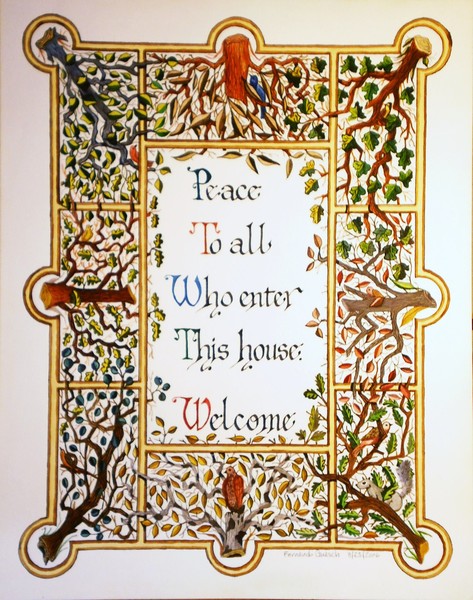 Peace
To all
Who enter
This house.
Welcome